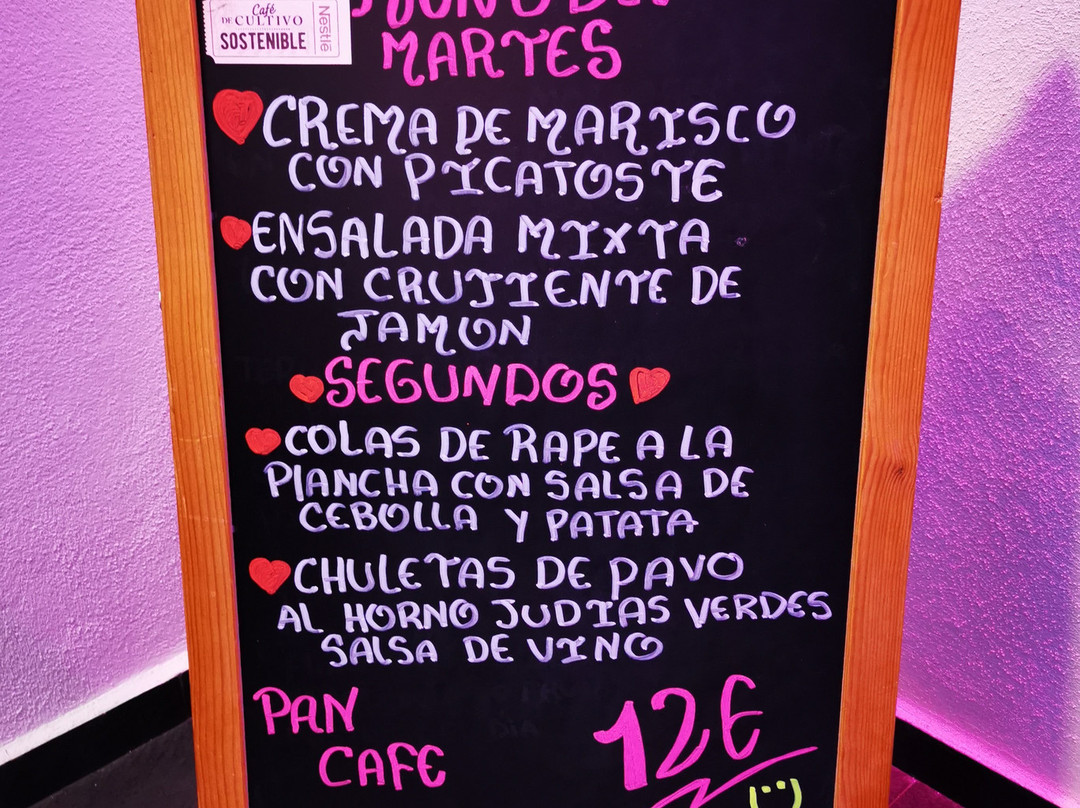 Café
DE CULTIVO
SOSTENIBLE
Nestlé
MARTES
CREMA DE MARISCO
CON PICATOSTE
ENSALADA MIXTA
CON CRUJIENTE DE
JAMON
SEGUNDOS
COLAS DE RAPE A LA
PLANCHA CON SALSA DE
CEBOLLA Y PATATA
CHULETAS DE PAVO
AL HORNO JUDIAS VERDES
SALSA DE VINO
PAN
CAFE
12€